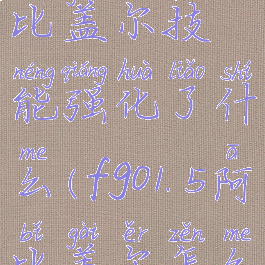 比盖尔技
néng qiáng huà liǎo shí
能强化了什
me ā
么(fgo1.5阿
bǐ gài ěr zěn me
比盖尔怎么